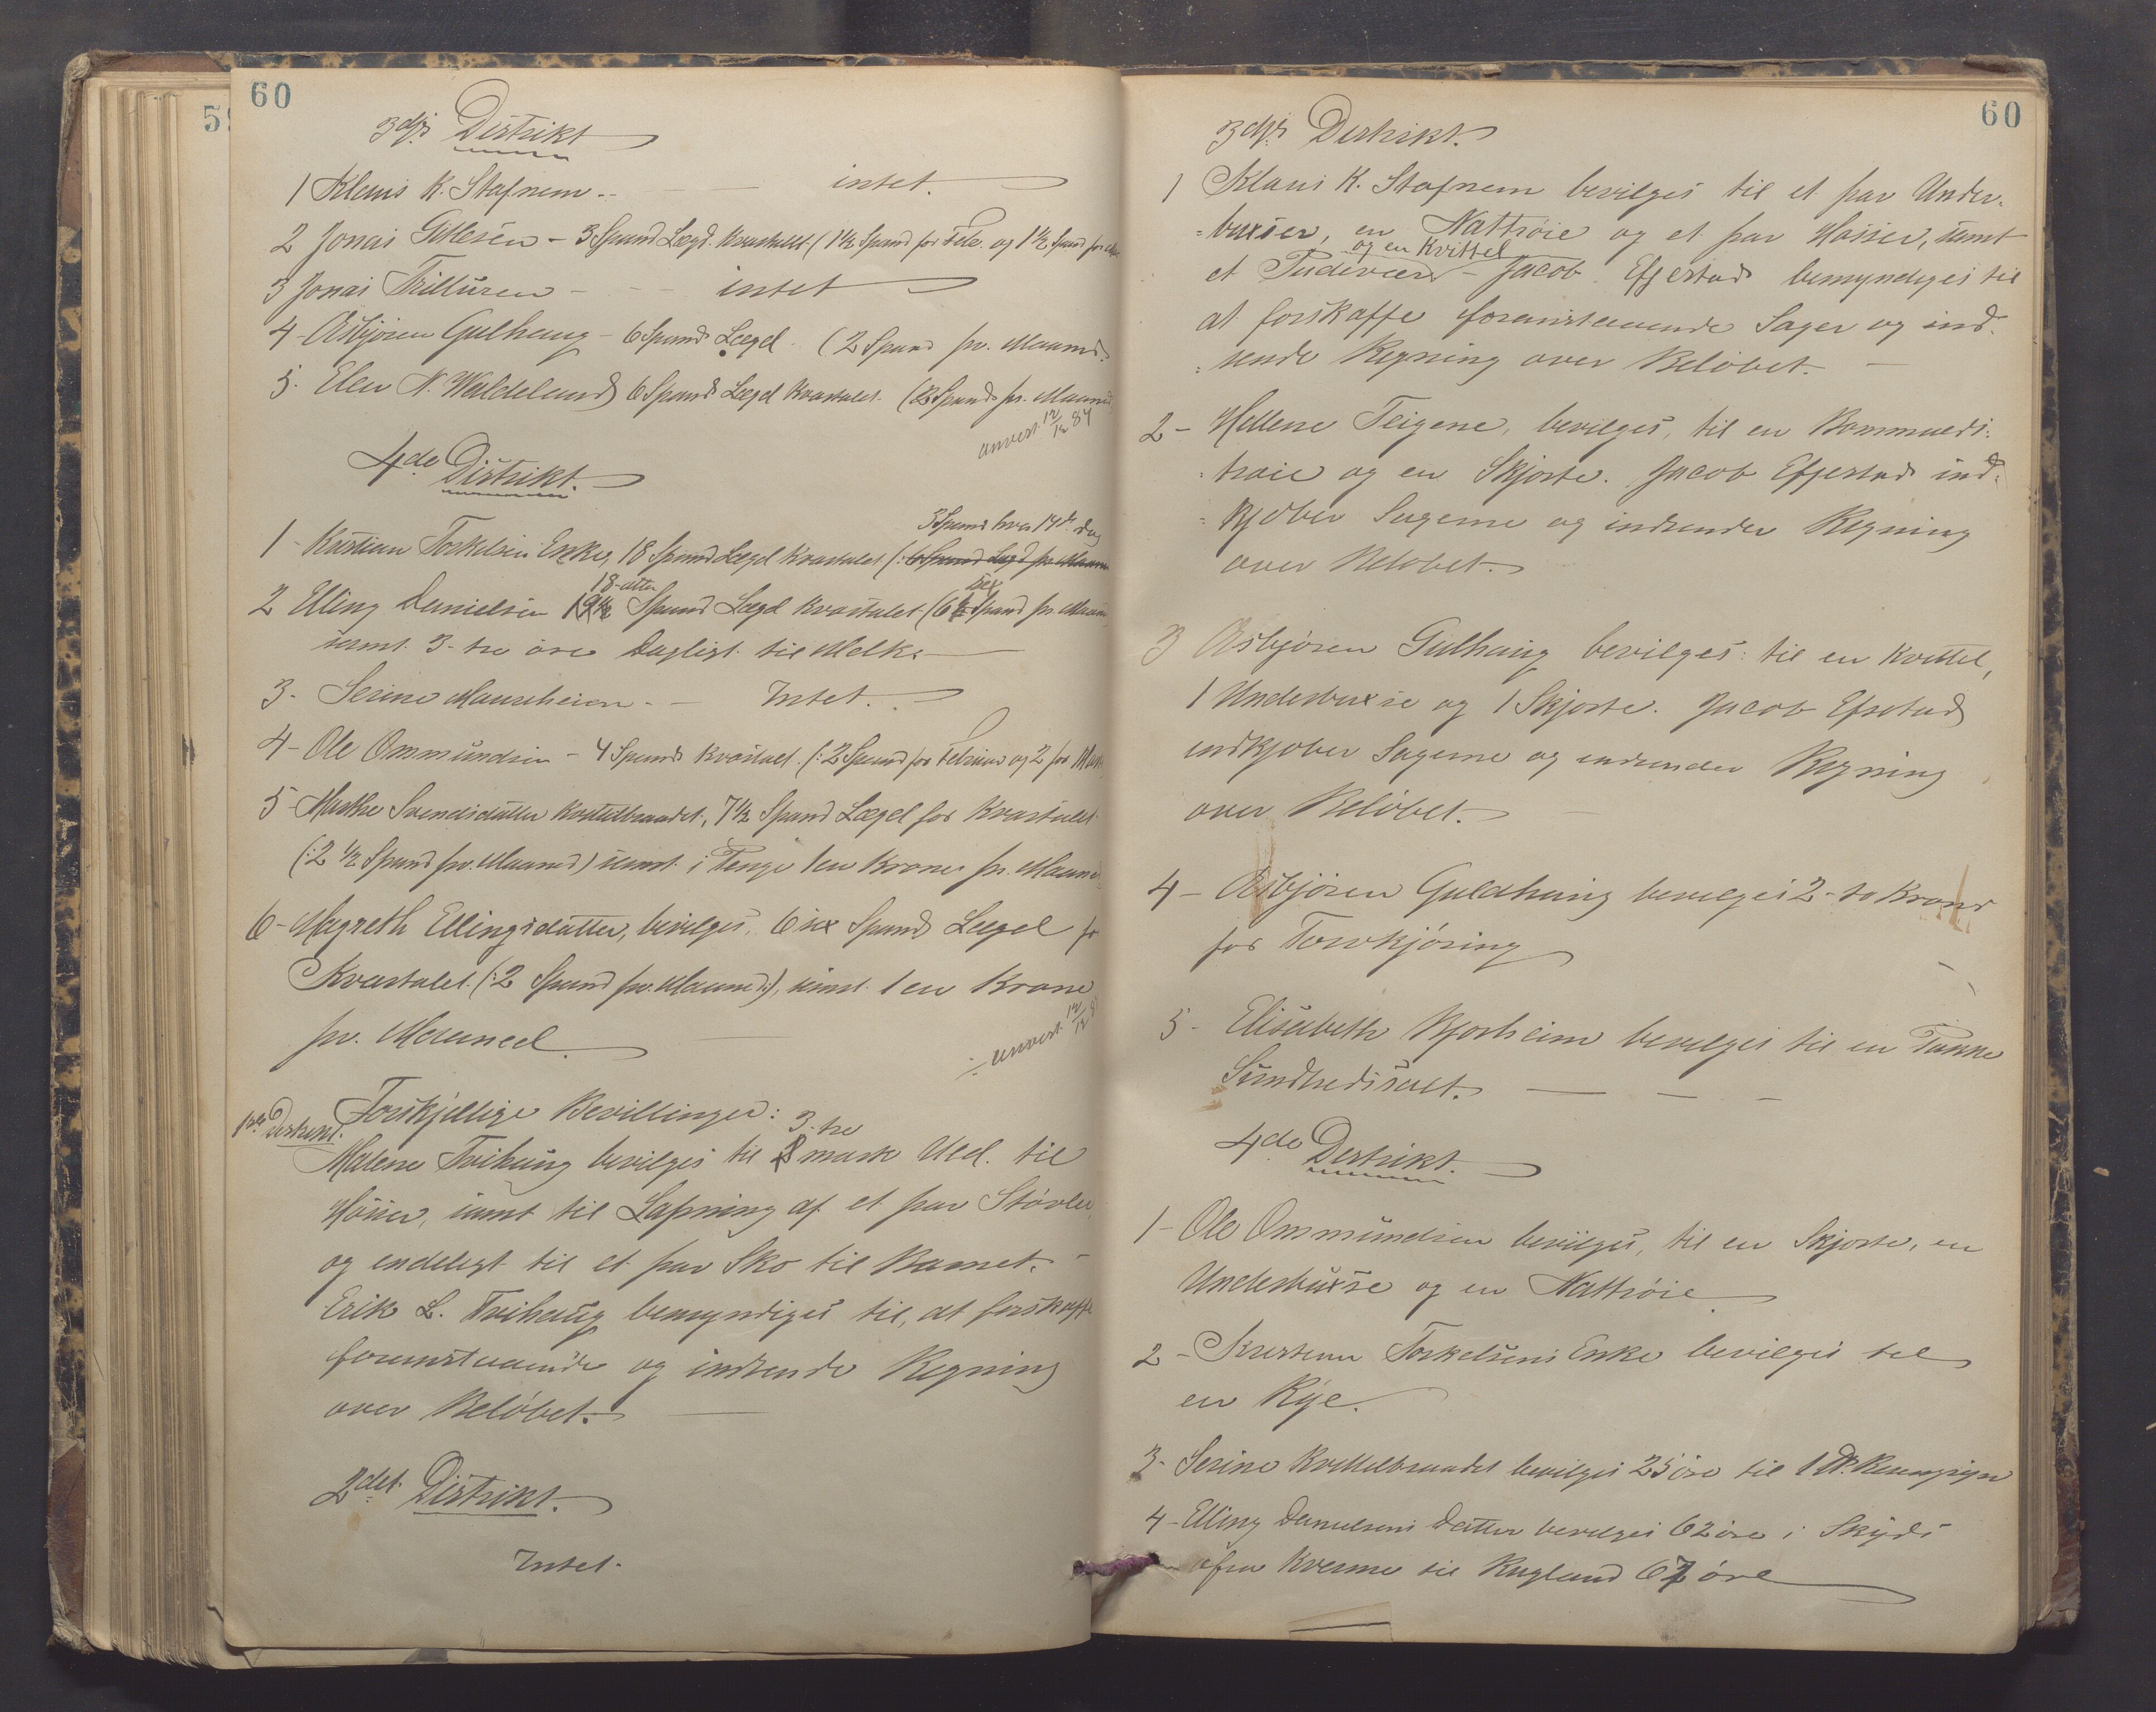 60
3die Distrikt
1 Klaus K. Stafnem - intet.
2 Jonas Gitlesen - 3 Spand Lægd. Kvartalet (1½ Spand for Febr. og 1½ Spand for
3 Jonas Trilluren - intet
4 - Asbjören Gulhaug - 6 Spand Lægd (2 Spand pr. Maaned
5. Elen N. Waldeland 6 Spand Lægd Kvartalet. (2 Spand pr. Maaned
anvist 12/12 84
4de Distrikt.
3 Spand hver 14de Dag
1 - Kristian Torkelsens Enke, 18 Spand Lægd Kvartalet (: 6 Spand Lægd pr Maaned
18-atten sex
2 Elling Danielsen 19½ Spand Lægd Kvartalet (6½ Spand pr Maaned
samt 3-tre öre Dagligt til Melk.
3. Serine Mauseheien - Intet.
4 - Ole Ommundsen - 4 Spand Kvartalet. (: 2 Spand for Februar og 2 for Mars
5 - Marthe Svendsdatter Kvitelbraadet, 7½ Spand Lægd for Kvartalet
(: 2½ Spand pr. Maaned) samt i Penge 1 en Krone pr. Maaned
6 - Magreth Ellingsdatter, bevilges, 6 sex Spand Lægd for
Kvartalet (: 2 Spand pr. Maaned), samt 1 en Krone
pr. Maaned
anvist 12/12
Forskjellige Bevillinger:
1ste Distrikt. 3-tre
Malene Tvihaug bevilges til mark Uld til
Hoser, samt til Lapning af et par Støvler
og endeligt til et par Sko til Barnet. -
Erik L. Tvihaug bemyndiges til, at forskaffe
foranstaaende og indsende Regning
over Belöbet.
2det Distrikt.
Intet.
60
3die Distrikt.
1 Klaus K. Stafnem bevilges til et par Under-
=buxser, en Nattröie og et par Hosser, samt
og en Kvittel
et Pudevær - Jacob Efjestad bemyndiges til
at forskaffe foranstaaende Sager og ind-
=sende Regning over Belöbet. -
2 - Hellene Teigene, bevilges, til en Bommulds-
=tröie og en Skjorte. Jacob Efjestad ind=
=kjöber Sagerne og indsender Regning
over Belöbet.
3 Asbjören Gulhaug bevilges: til en Kvittel,
1 Underbuxse og 1 Skjorte. Jacob Efjestad
indkjöber Sagerne og indsender Regning
over Belöbet.
4 - Asbjören Guldhaug bevilges 2-to Kroner
for Torvkjöring
5 - Elisabeth Bjorheim bevilges til en Tønne
Sundhedssalt.
4de Distrikt.
1 - Ole Ommundsen bevilges, til en Skjorte, en
Underbuxse og en Nattröie
2 - Kristian Torkelsens Enke bevilges til
en Rye.
3 - Serine Kvittelbraadet bevilges 25 öre til 1
4 - Elling Danielsens Datter bevilges 62 öre i Skyds
fra Kverme til Rugland 62 öre